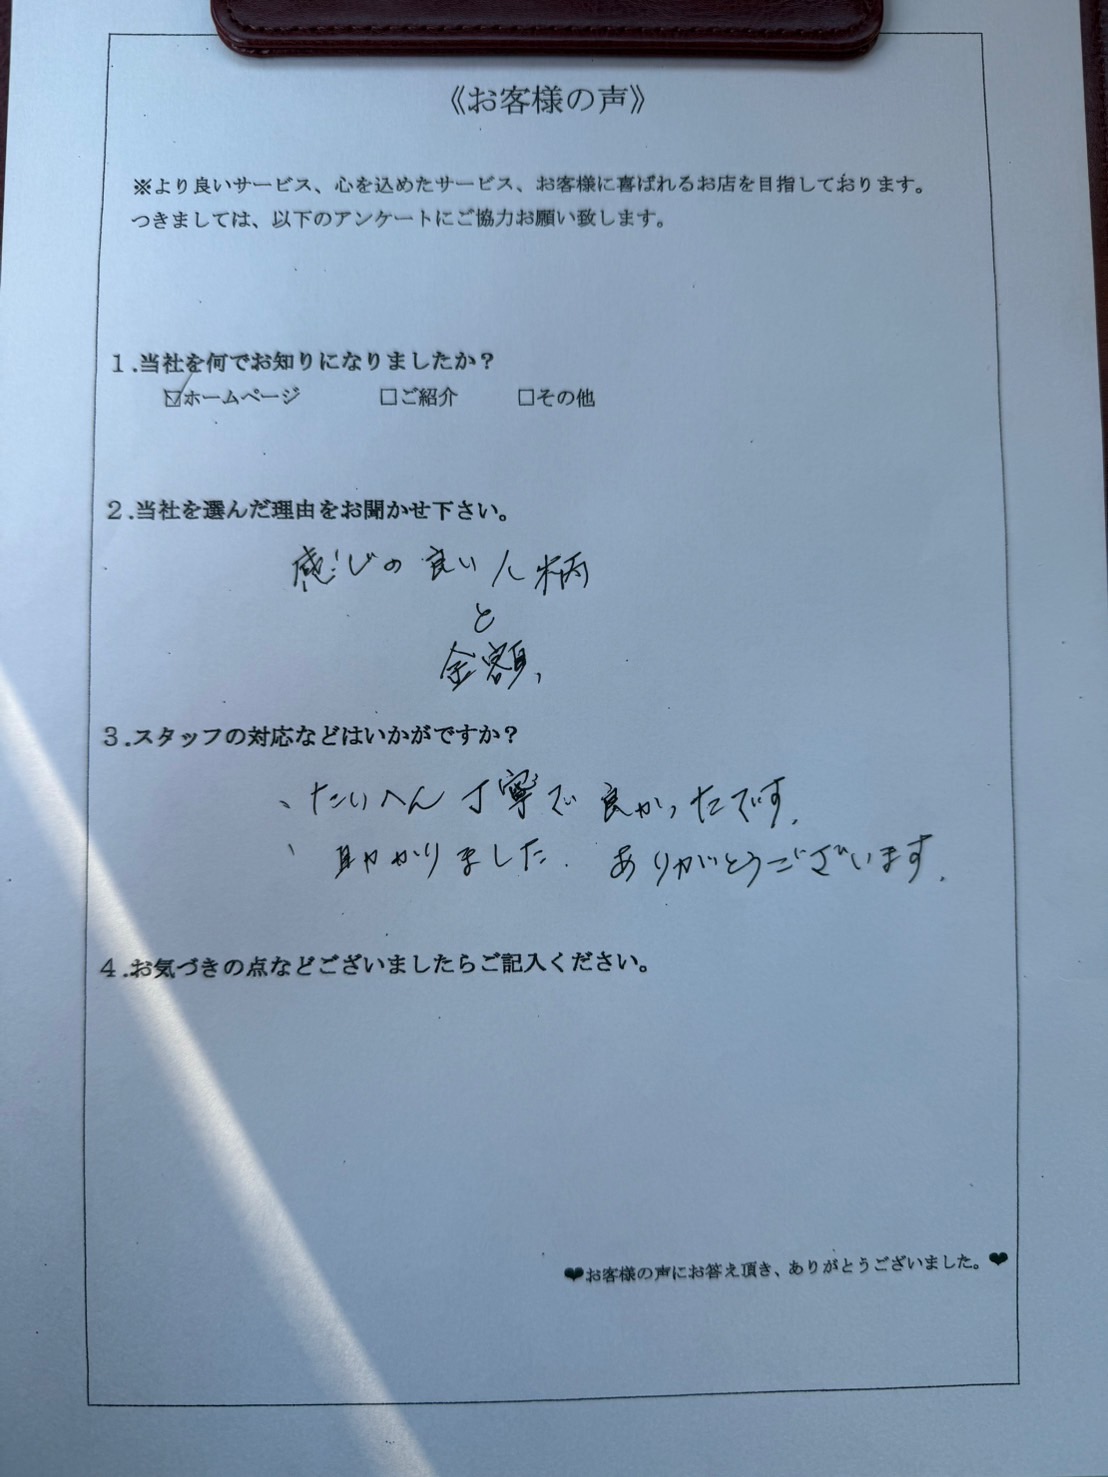 《お客様の声》
※より良いサービス、心を込めたサービス、お客様に喜ばれるお店を目指しております。
つきましては、以下のアンケートにご協力お願い致します。
１.当社を何でお知りになりましたか？
☑ホームページ □ご紹介 □その他
２.当社を選んだ理由をお聞かせ下さい。
感じの良い人柄
と
金額、
３.スタッフの対応などはいかがですか？
、たいへん丁寧で良かったです.
、助かりました. ありがとうございます.
４.お気づきの点などございましたらご記入ください。
❤お客様の声にお答え頂き、ありがとうございました。❤